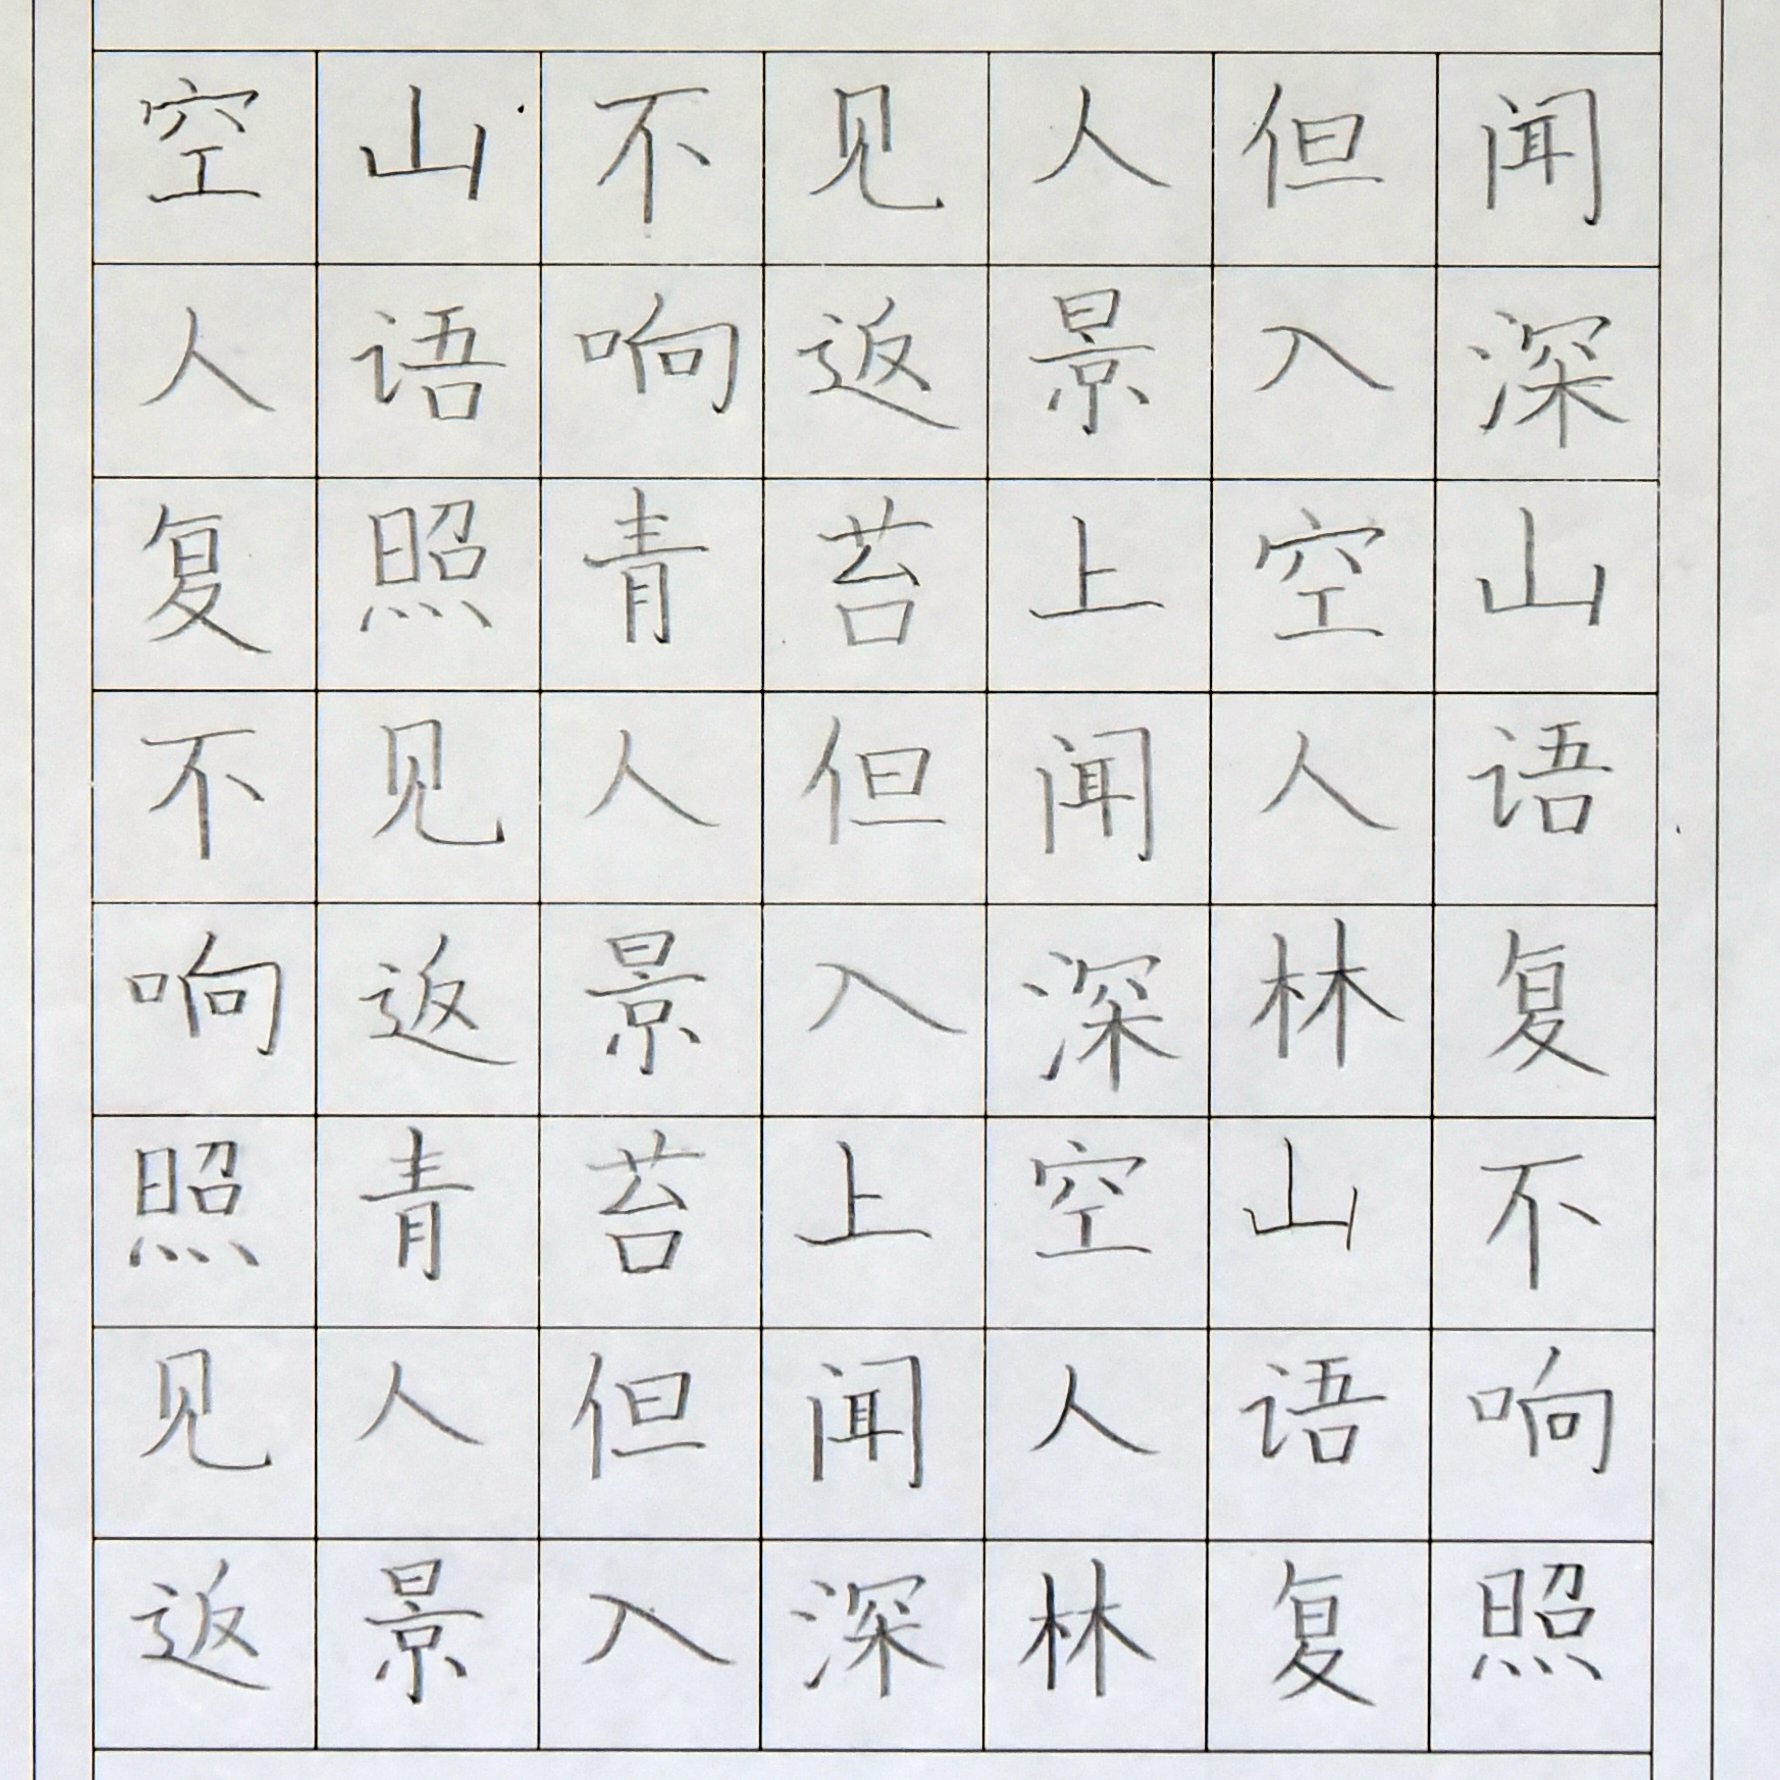 空山不见人但闻
人语响返景入深
复照青苔上空山
不见人但闻人语
响返景入深林复
照青苔上空山不
见人但闻人语响
返景入深林复照